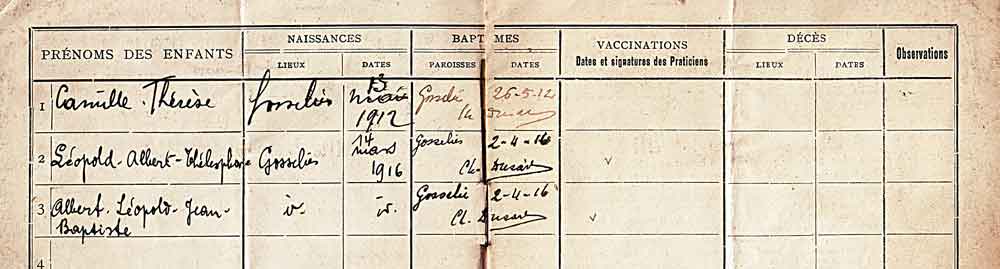 PRÉNOMS DES ENFANTS NAISSANCES BAPTÊMES VACCINATIONS DÉCÈS Observations
LIEUX DATES PAROISSES DATES Dates et signatures des Praticiens LIEUX DATES
1 Camille-Thérèse Gosselies 13 mai 1912 Gosselie 26-5-12
2 Léopold-Albert-Thélesphore Gosselies 14 mars 1916 Gosselies 2-4-16
Ch. Dusart
3 Albert-Léopold-Jean- id. id. Gosselie 2-4-16
Baptiste Cl. Dusart
4